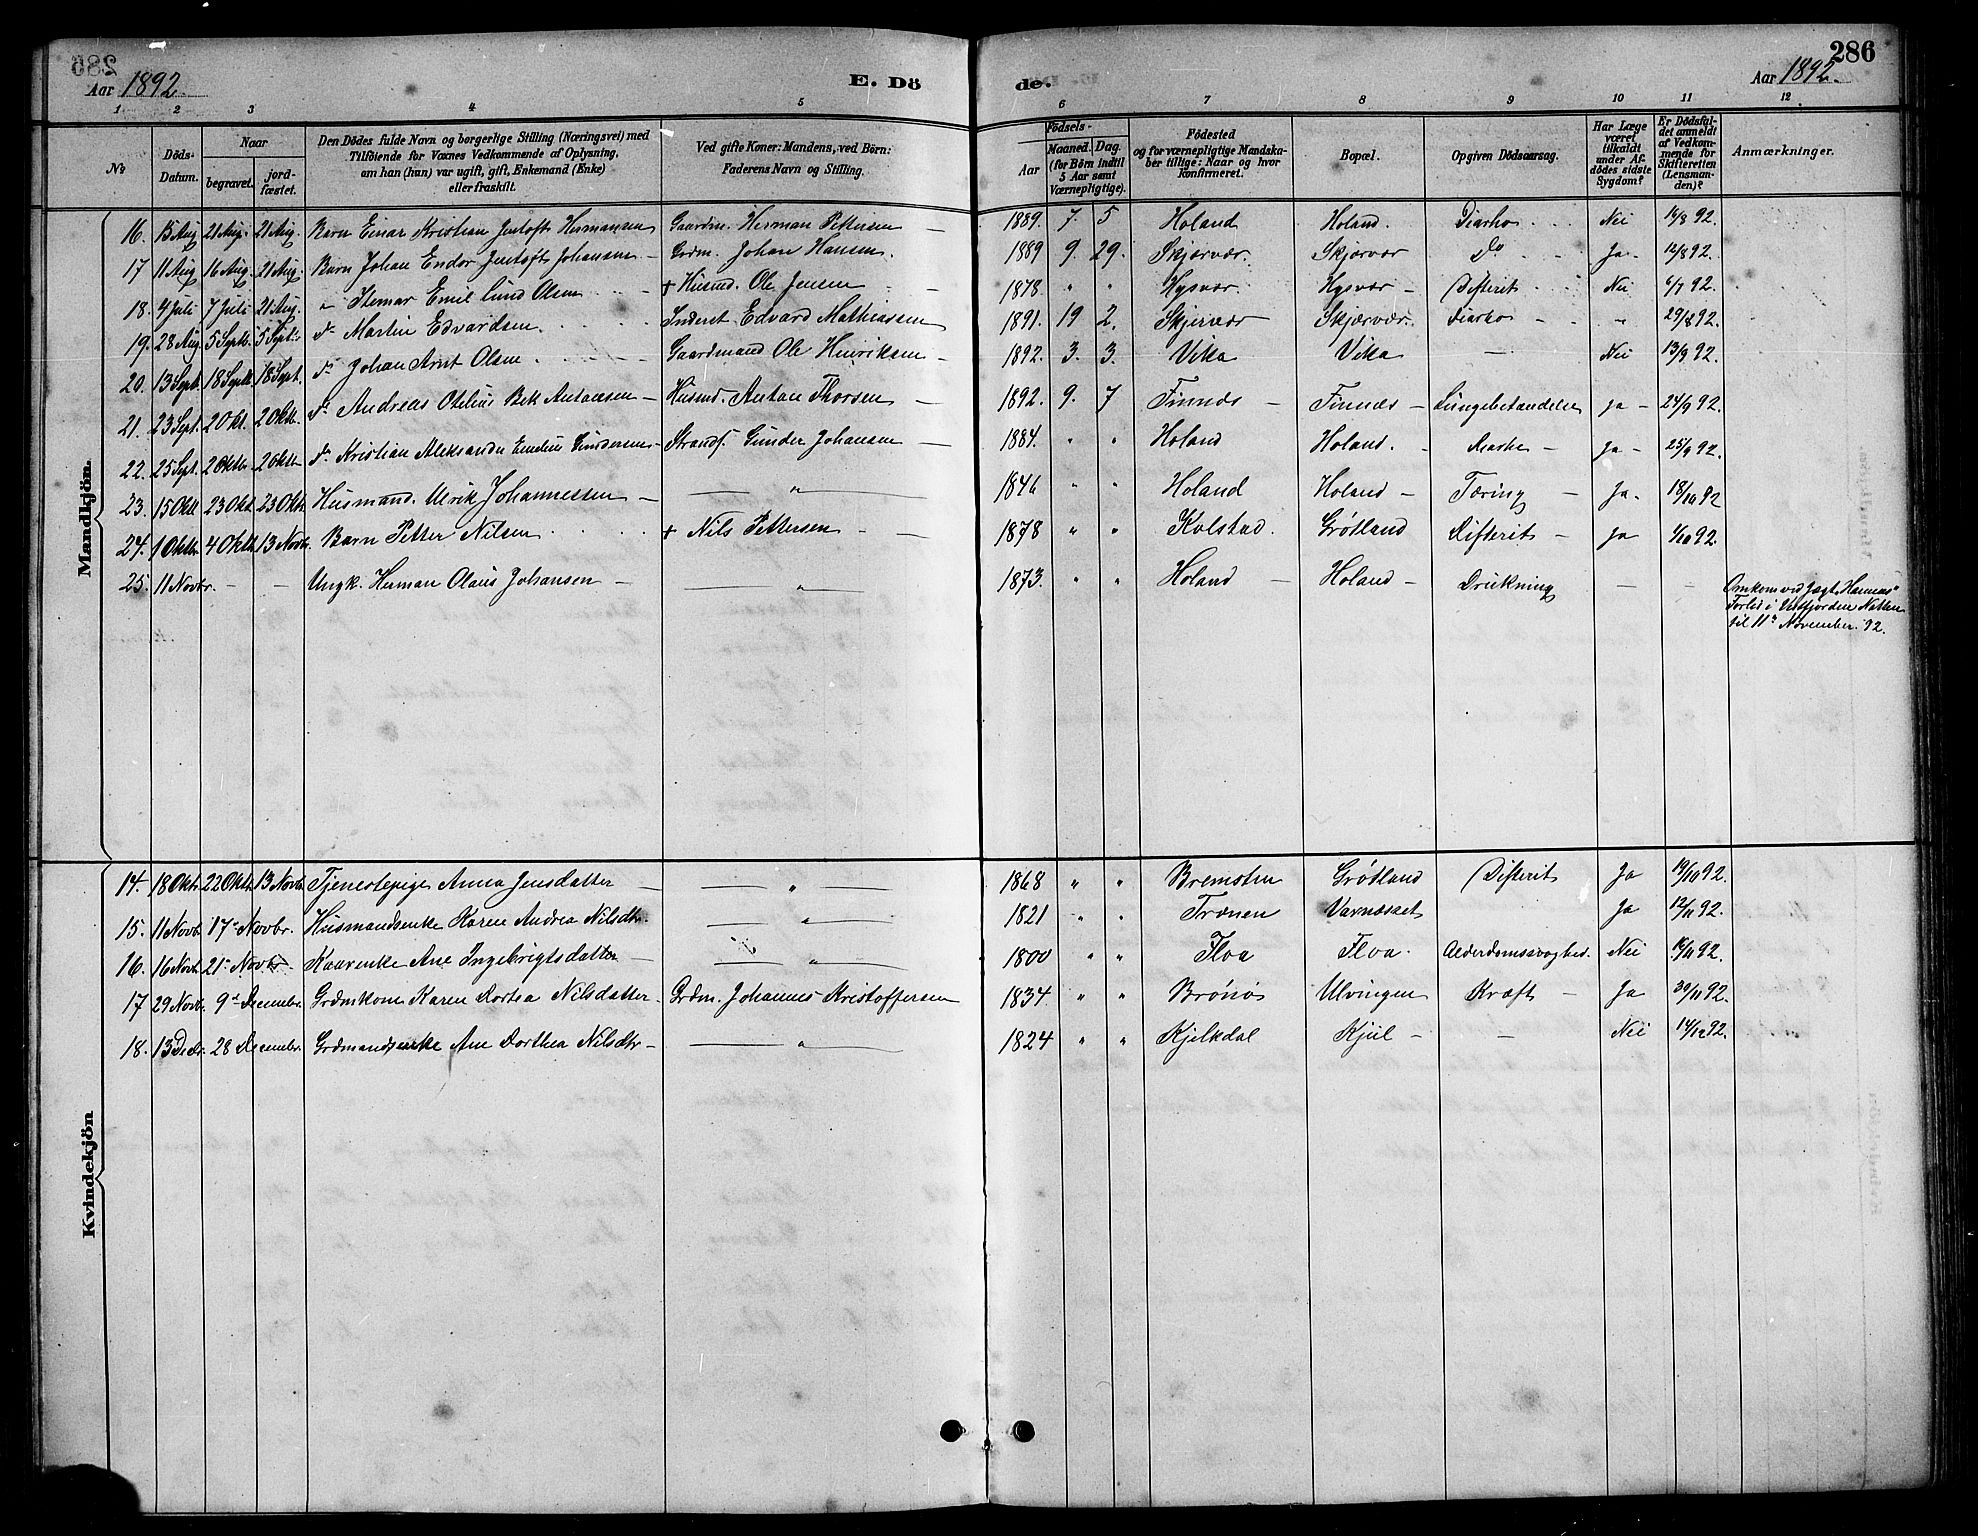 286
Aar 1892.
E. Dö
de.
Aar 1892.
1 2 3 4 5 6 7 8 9 10 11 12
No
Döds-Datum.
Naar
begravet.
jord-fæstet.
Den Dödes fulde Navn og borgerlige Stilling (Næringsvei) med Tilföiende for Voxnes Vedkommende af Oplysning, om han (hun) var ugift, gift, Enkemand (Enke) eller fraskilt.
Ved gifte Koner: Mandens, ved Börn: Faderens Navn og Stilling.
Födsels-
Aar
Maaned. Dag.
(for Börn indtil 5 Aar samt Værnepligtige).
Födested og for værnepligtige Mandskaber tillige: Naar og hvor Konfirmeret.
Bopæl.
Opgiven Dödsaarsag.
Har Læge været tilkaldt under Afdödes sidste Sygdom?
Er Dödsfaldet anmeldt af Vedkommende for Skifteretten (Lensmanden)?
Anmærkninger.
Mandkjön.
16. 15 Aug 21 Aug. 21 Aug. Barn Einar Kristian Jentoft Hermansen Gaardm. Herman Pettersen 1889. 7. 5 Holand Holand. Diarho Nei 16/8 92.
17 11 Aug 16 Aug. 21 Aug. Barn Johan Endor Jentoft Johansen Grdm. Johan Hansen. 1889 9. 29. Skjærvær. Skjærvær Do Ja 12/8 92.
18. 4 Juli 7 Juli 21 Aug. " Itemar Emil Lund Olsen + Husmd. Ole Jensen 1878. " " Hysvær. Hysvær Difterit Nei 6/7 92.
19. 28 Aug. 5 Septb. 5 Septb. do Martin Edvardsen Inderst Edvard Mathiassen 1891. 19 2. Skjærvær Skjærvær. Diarho " 29/8 92.
20. 13 Septb. 18 Septb. 18 Sept. do Johan Arnt Olsen Gaardmand Ole Henriksen 1892. 3. 3. Vika Vika — Nei 13/9 92.
21. 23 Sept. 2 Okt. 2 Okt. do Andreas Otelius Bek Antonsen Husmd. Antan Thorsen 1892. 9. 7 Finnæs Finnæs Lungebetændelse ja 24/9 92.
22. 25 Sept. 2 Oktbr. 2 Oktbr. do Kristian Aleksander Emelius Gundersen Strands. Gunder Johansen 1884. " " Holand Holand. Diarho ja 25/9 92.
23. 15 Okt 23 Okt. 23 Oktr. Husmand. Ulrik Johannessen " 1846 " " Holand Holand Tæring Ja. 18/10 92
24. 1 Oktbr. 4 Oktb. 13 Novbr. Barn Petter Nilsen + Nils Pettersen 1878 " " Kolstad. Grötland Difterit ja 1/10 92.
25. 11 Novbr. — — Ungk. Herman Olaus Johansen " 1873. " " Holand Holand Drukning — — Omkom ved Jægt. "Hannas" Forlis i Vestfjorden Natten til 11te November. 92.
Kvindekjön
14. 18 Oktr. 22 Oktb. 13 Novb. Tjenestepige Anna Jensdatter " 1868 " " Bremsten Grötland Difterit Ja 19/10 92.
15. 11 Novb. 17de Novbr. Husmandsenke Karen Andrea Nilsdtr. " 1821 " " Trænen Varnæsæt Ja 12/11 92.
16. 16 Novb. 21de Novbr. Kaarenke Ane Ingebrigtsdatter " 1800 " " Floa Floa. Alderdomssvaghed. Nei 16/11 92.
17 29 Novb. 9de Decembr. Grdmkone Karen Dortea Nilsdatter Grdm. Johannes Kristoffersen 1834 " " Brönö Ulvingen Kræft Ja 30/11 92.
18. 13 Decbr. 28 Decembr. Grdmandsenke Ane Dorthea Nilsdtr " 1824 " " Kjelkdal Kjul — Nei 14/12 92.